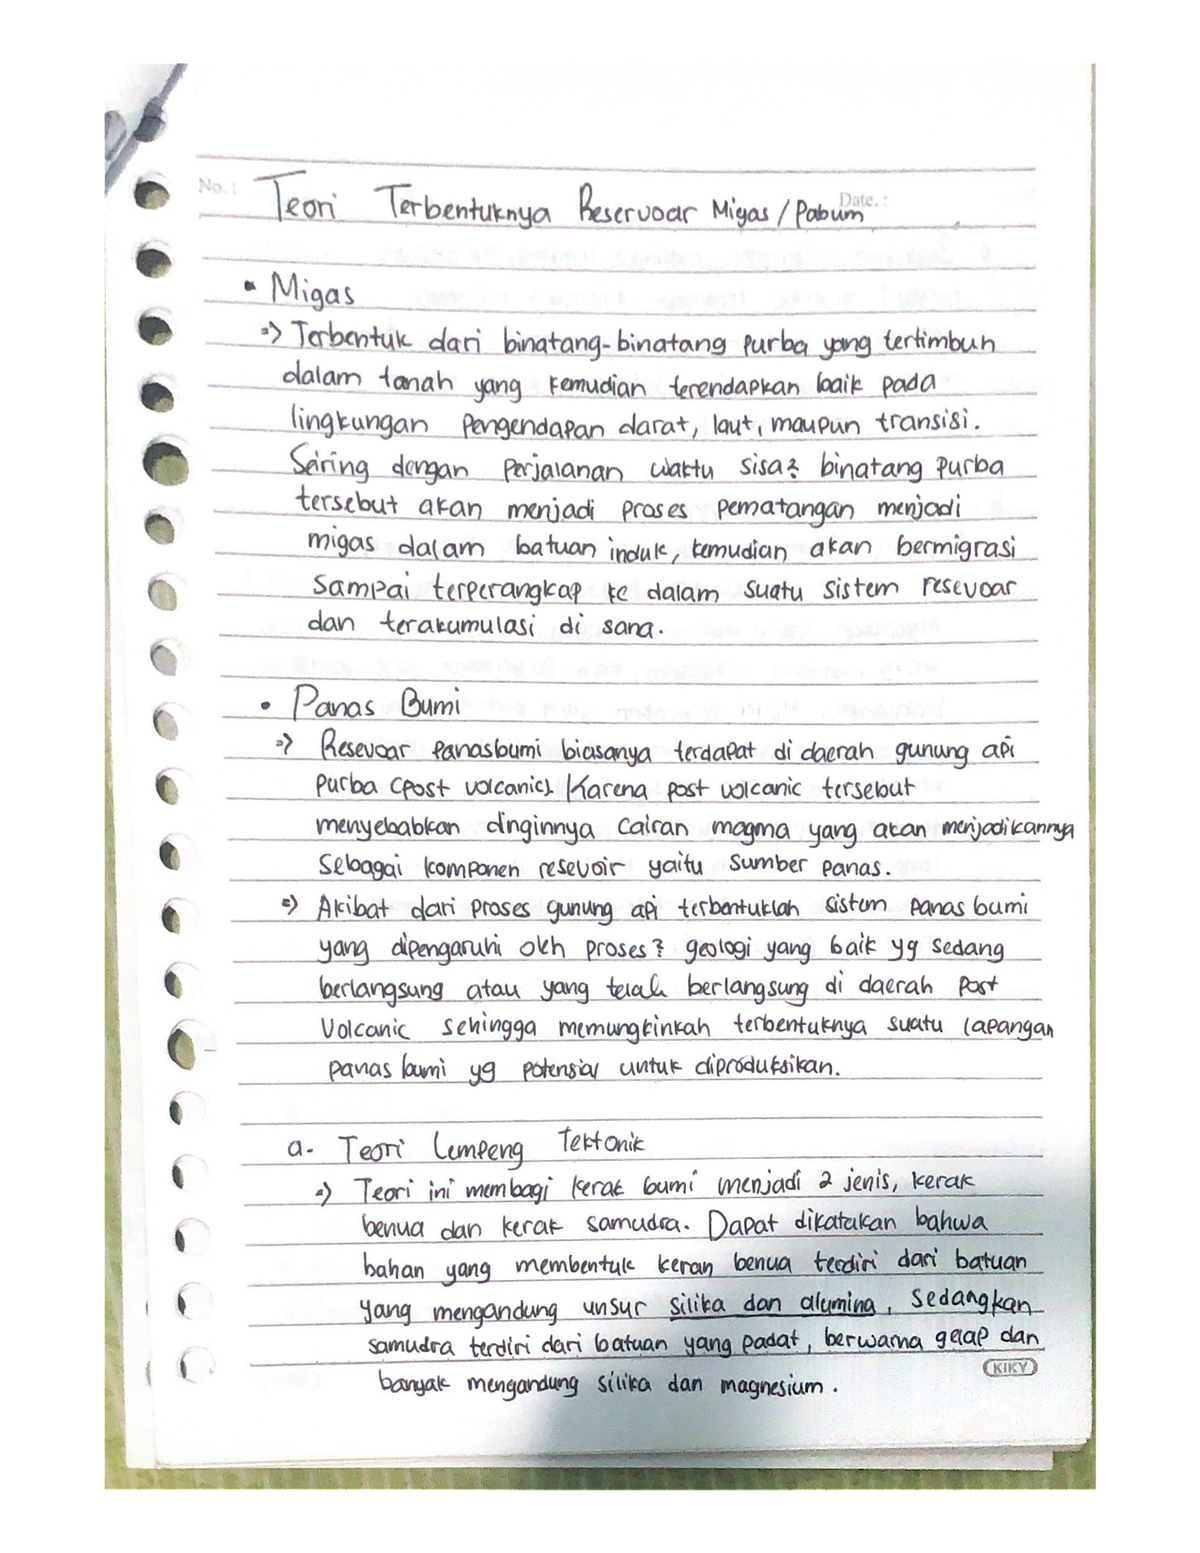 No. :
Date. :
Teori Terbentuknya Reservoar Migas / Pabum
• Migas
=> Terbentuk dari binatang-binatang purba yang tertimbun
dalam tanah yang kemudian terendapkan baik pada
lingkungan pengendapan darat, laut, maupun transisi.
Seiring dengan perjalanan waktu sisa2 binatang purba
tersebut akan menjadi proses pematangan menjadi
migas dalam batuan induk, kemudian akan bermigrasi
sampai terperangkap ke dalam suatu sistem resevoar
dan terakumulasi di sana.
• Panas Bumi
=> Resevoar panasbumi biasanya terdapat di daerah gunung api
purba (post volcanic). Karena post volcanic tersebut
menyebabkan dinginnya cairan magma yang akan menjadikannya
sebagai komponen resevoir yaitu sumber panas.
=> Akibat dari proses gunung api terbentuklah sistem panas bumi
yang dipengaruhi oleh proses2 geologi yang baik yg sedang
berlangsung atau yang telah berlangsung di daerah post
volcanic sehingga memungkinkah terbentuknya suatu lapangan
panas bumi yg potensial untuk diproduksikan.
a. Teori Lempeng Tektonik
=> Teori ini membagi kerak bumi menjadi 2 jenis, kerak
benua dan kerak samudra. Dapat dikatakan bahwa
bahan yang membentuk keran benua terdiri dari batuan
yang mengandung unsur silika dan alumina, sedangkan
samudra terdiri dari batuan yang padat, berwarna gelap dan
banyak mengandung silika dan magnesium.
KIKY